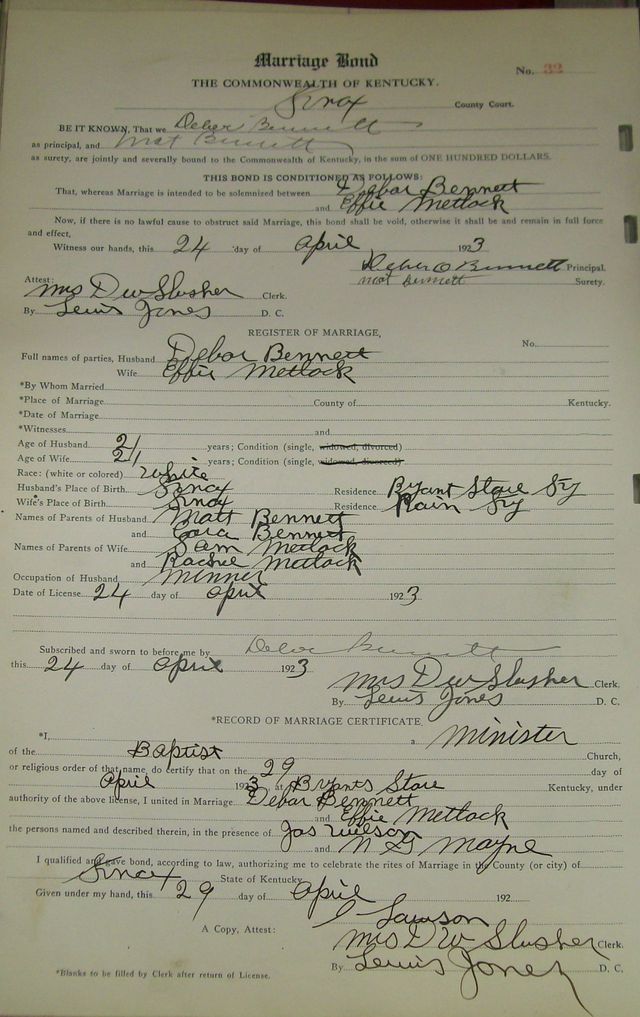 Marriage Bond
No. 32
THE COMMONWEALTH OF KENTUCKY.
Knox County Court.
BE IT KNOWN, That we Debar Bennett
as principal, and Mat Bennett
as surety, are jointly and severally bound to the Commonwealth of Kentucky, in the sum of ONE HUNDRED DOLLARS.
THIS BOND IS CONDITIONED AS FOLLOWS:
That, whereas Marriage is intended to be solemnized between Debar Bennett
and Effie Metlock
Now, if there is no lawful cause to obstruct said Marriage, this bond shall be void, otherwise it shall be and remain in full force
and effect,
Witness our hands, this 24 day of April 1923
Debar O Bennett Principal.
Mat Bennett Surety.
Attest:
Mrs D W Slusher Clerk.
By Lewis Jones D. C.
REGISTER OF MARRIAGE,
No.
Full names of parties, Husband Debar Bennett
Wife Effie Metlock
*By Whom Married
*Place of Marriage County of Kentucky.
*Date of Marriage
*Witnesses and
Age of Husband 21 years; Condition (single, widowed, divorced)
Age of Wife 21 years; Condition (single, widowed, divorced)
Race: (white or colored) White
Husband's Place of Birth Knox Residence Bryant Store Ky
Wife's Place of Birth Knox Residence Rain Ky
Names of Parents of Husband Matt Bennett
and Bennett
Names of Parents of Wife Sam Metlock
and Rachel Metlock
Occupation of Husband Minner
Date of License 24 day of April 1923
Subscribed and sworn to before me by Debar Bennett
this 24 day of April 1923
Mrs D W Slusher Clerk,
By Lewis Jones D. C.
*RECORD OF MARRIAGE CERTIFICATE.
*I, a Minister
of the Baptist Church,
or religious order of that name, do certify that on the 29 day of
April 1923 at Bryants Store Kentucky, under
authority of the above license, I united in Marriage Debar Bennett
and Effie Metlock
the persons named and described therein, in the presence of Jas Wilson
and N G Mayne
I qualified and gave bond, according to law, authorizing me to celebrate the rites of Marriage in the County (or city) of
Knox State of Kentucky
Given under my hand, this 29 day of April 192
Lawson
A Copy, Attest:
Mrs D W Slusher Clerk.
By Lewis Jones D. C.
*Blanks to be filled by Clerk after return of License.